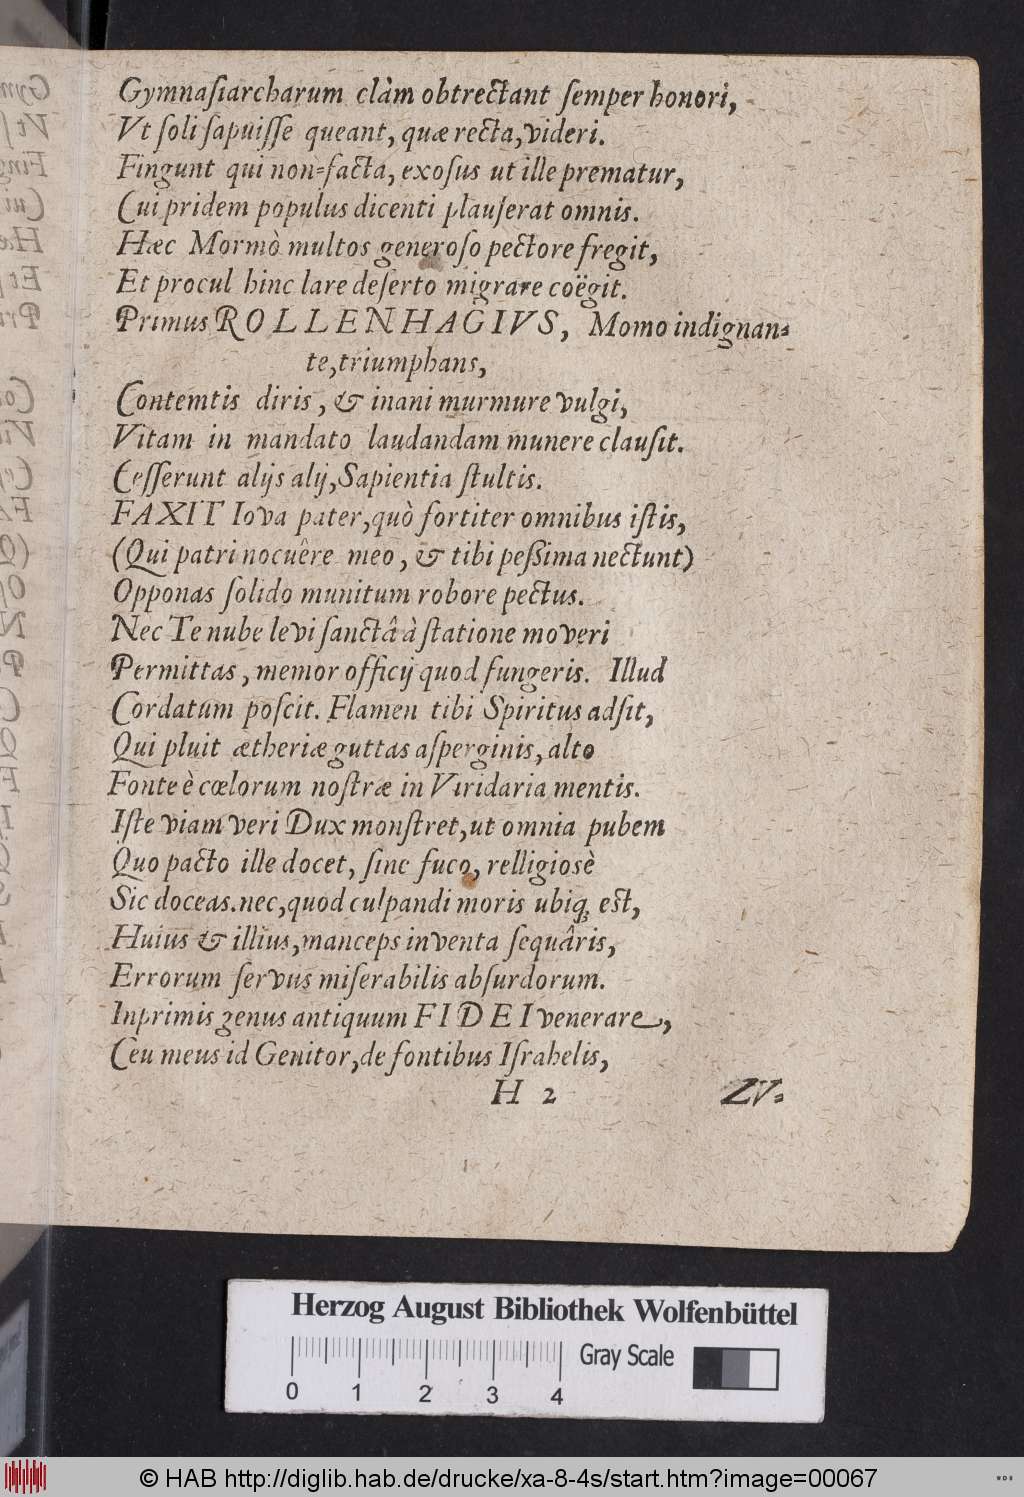 Gymnaſiarcharum clàm obtrectant ſemper honori,
Vt ſoli ſapuiſſe queant, quæ recta, videri.
Fingunt qui non-facta, exoſus ut ille prematur,
Cui pridem populus dicenti plauſerat omnis.
Hæc Mormò multos generoſo pectore fregit,
Et procul hinc lare deſerto migrare coëgit.
Primus ROLLENHAGIVS, Momo indignan-
te, triumphans,
Contemtis diris, & inani murmure vulgi,
Vitam in mandato laudandam munere clauſit.
Ceſſerunt alijs alij, Sapientia ſtultis.
FAXIT Iova pater, quò fortiter omnibus iſtis,
(Qui patri nocuêre meo, & tibi peſſima nectunt)
Opponas ſolido munitum robore pectus.
Nec Te nube levi ſanctâ à ſtatione moveri
Permittas, memor officij quod fungeris. Illud
Cordatum poſcit. Flamen tibi Spiritus adſit,
Qui pluit ætheriæ guttas aſperginis, alto
Fonte è cœlorum noſtræ in Viridaria mentis.
Iſte viam veri Dux monſtret, ut omnia pubem
Quo pacto ille docet, ſine fuco, relligiosè
Sic doceas. nec, quod culpandi moris ubiqꝫ est,
Huius & illius, manceps inventa ſequâris,
Errorum ſervus miſerabilis abſurdorum.
Inprimis genus antiquum FIDEI venerare,
Ceu meus id Genitor, de fontibus Iſrahelis,
H 2 ZV-
Herzog August Bibliothek Wolfenbüttel
Gray Scale
0 1 2 3 4
© HAB http://diglib.hab.de/drucke/xa-8-4s/start.htm?image=00067